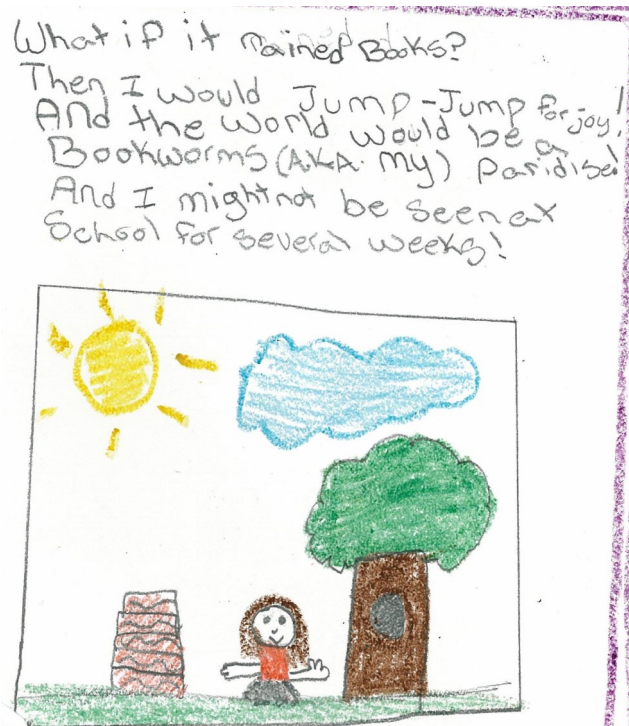 What if it rained Books?
Then I would Jump-Jump for joy!
And the world would be a
Bookworms (A.K.A. My) Paridise!
And I might not be seen at
School for several weeks!